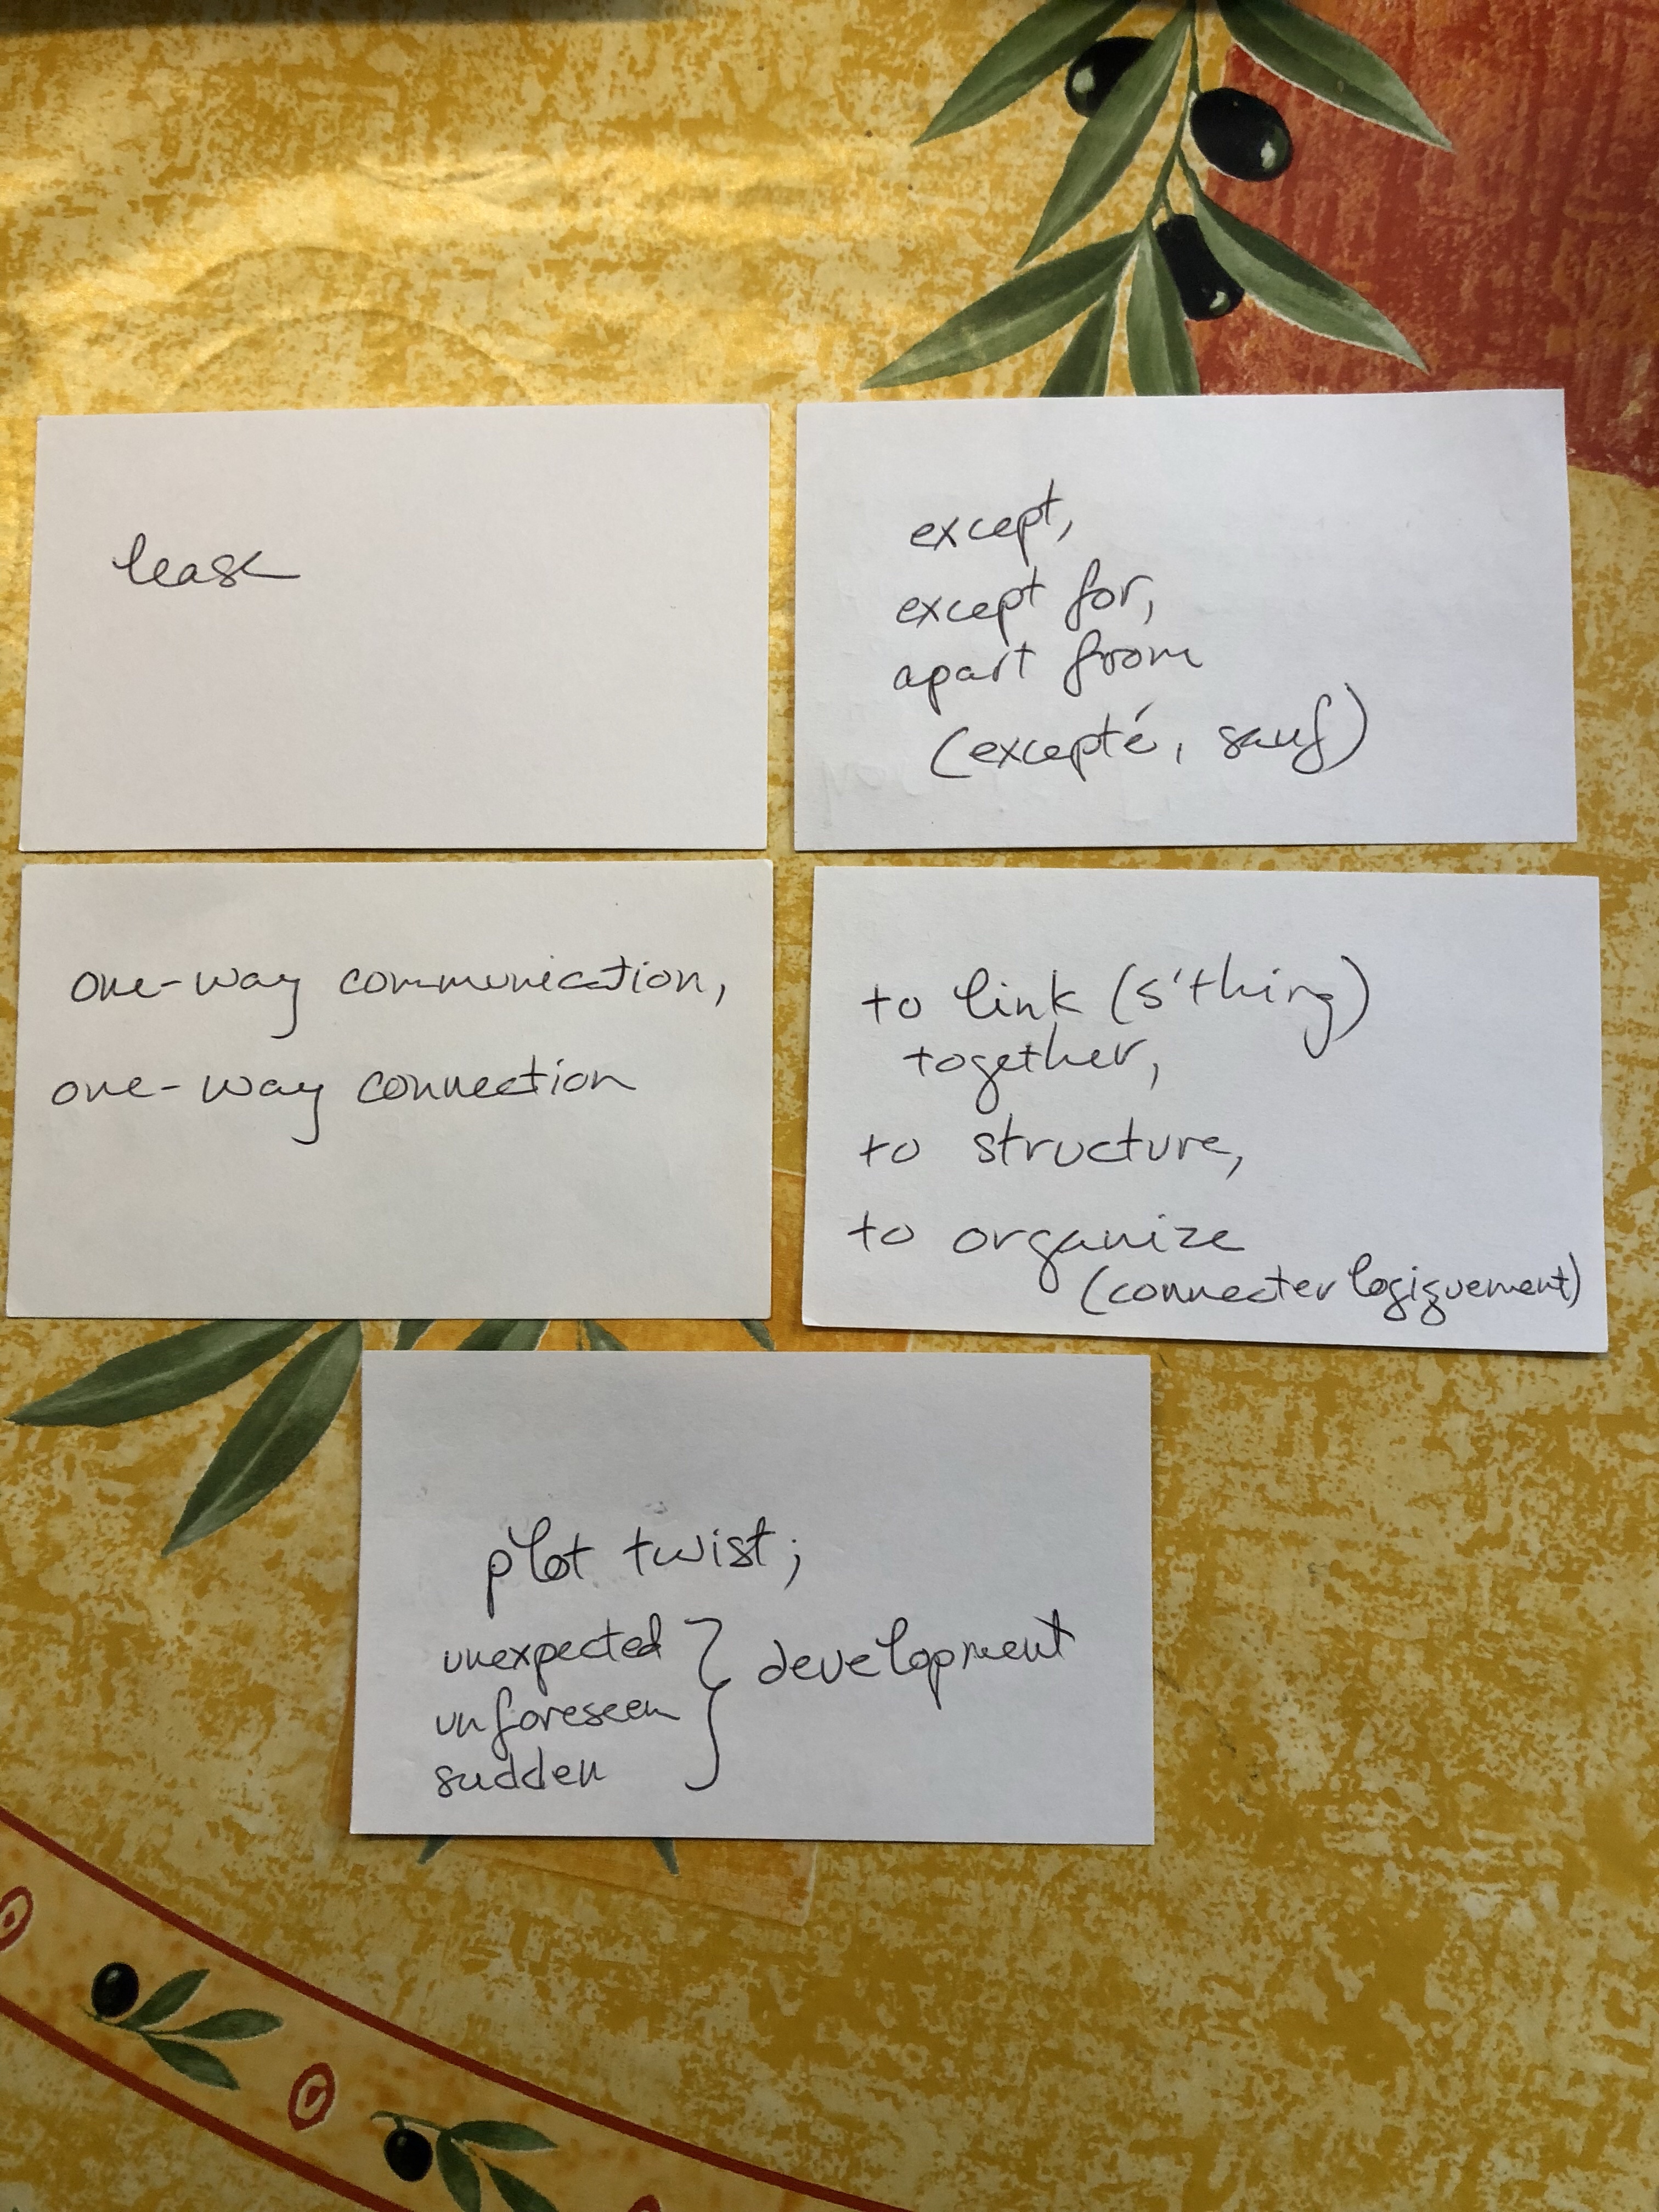 lease
except,
except for,
apart from
(excepté, sauf)
one-way communication,
one-way connection
to link (s'thing)
together,
to structure,
to organize
(connecter logiquement)
plot twist;
unexpected
unforeseen
sudden
development